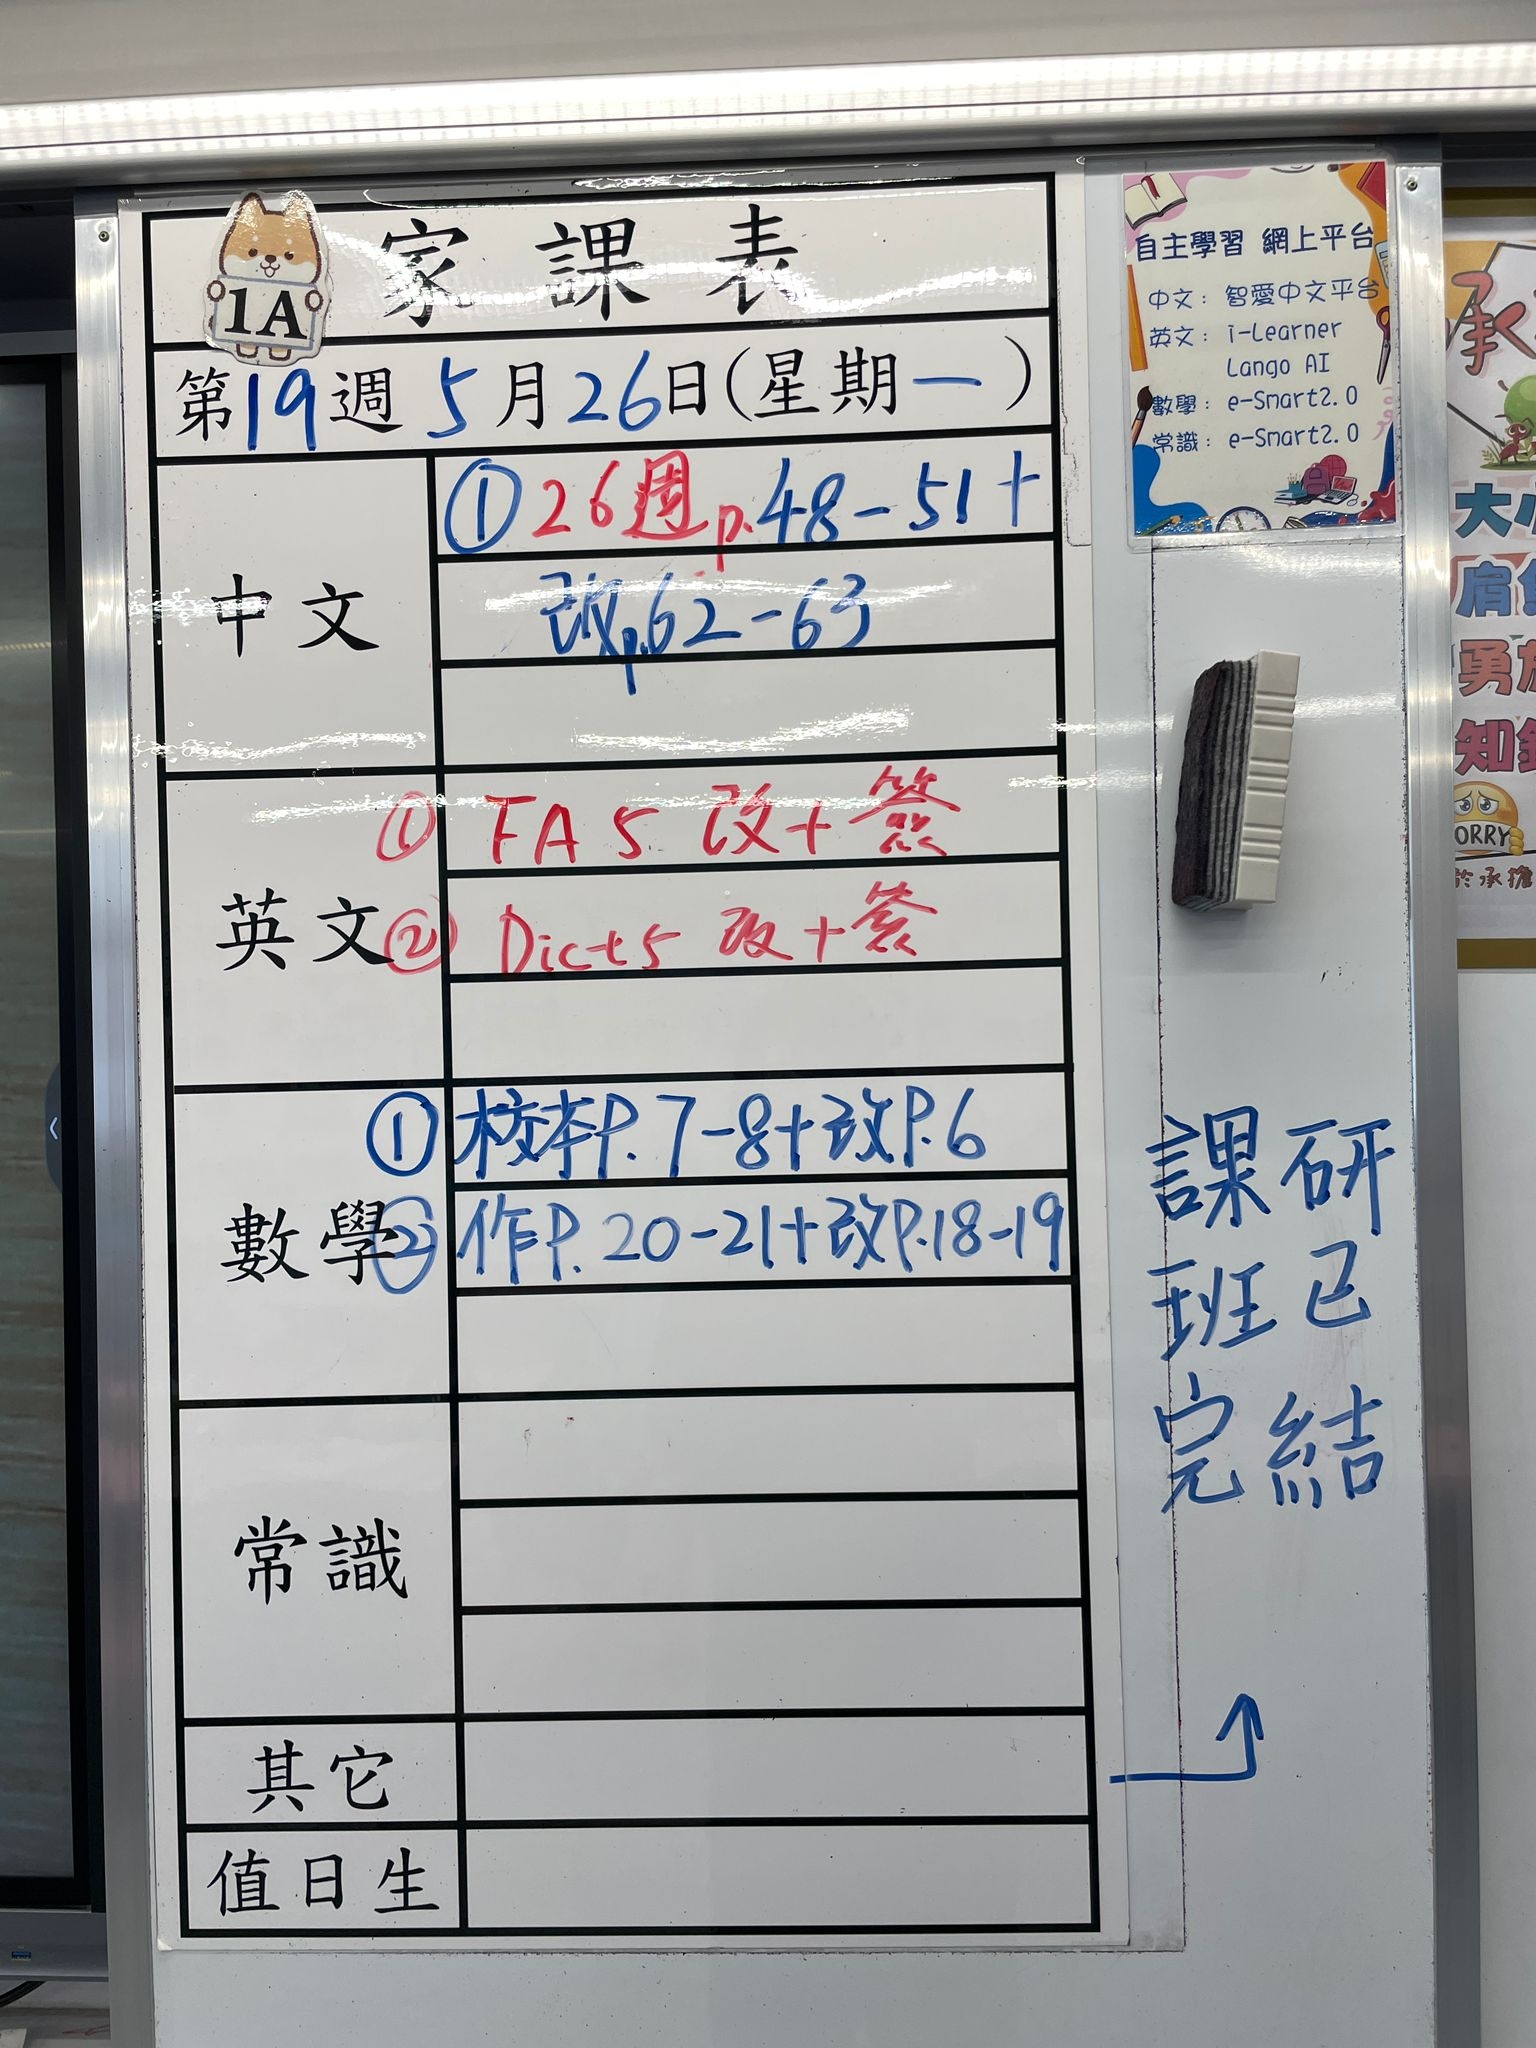 1A
家課表
第19週 5月26日(星期一)
中文
① 26週 p.48-51+
改p.62-63
英文
① FA 5 改+簽
② Dict 5 改+簽
數學
① 校本P.7-8+改P.6
② 作P.20-21+改P.18-19
常識
其它
值日生
自主學習 網上平台
中文: 智愛中文平台
英文: i-Learner
Lango AI
數學: e-Smart2.0
常識: e-Smart2.0
課研
班已
完結
承
大小
肩
勇於
知錯
SORRY
於承擔